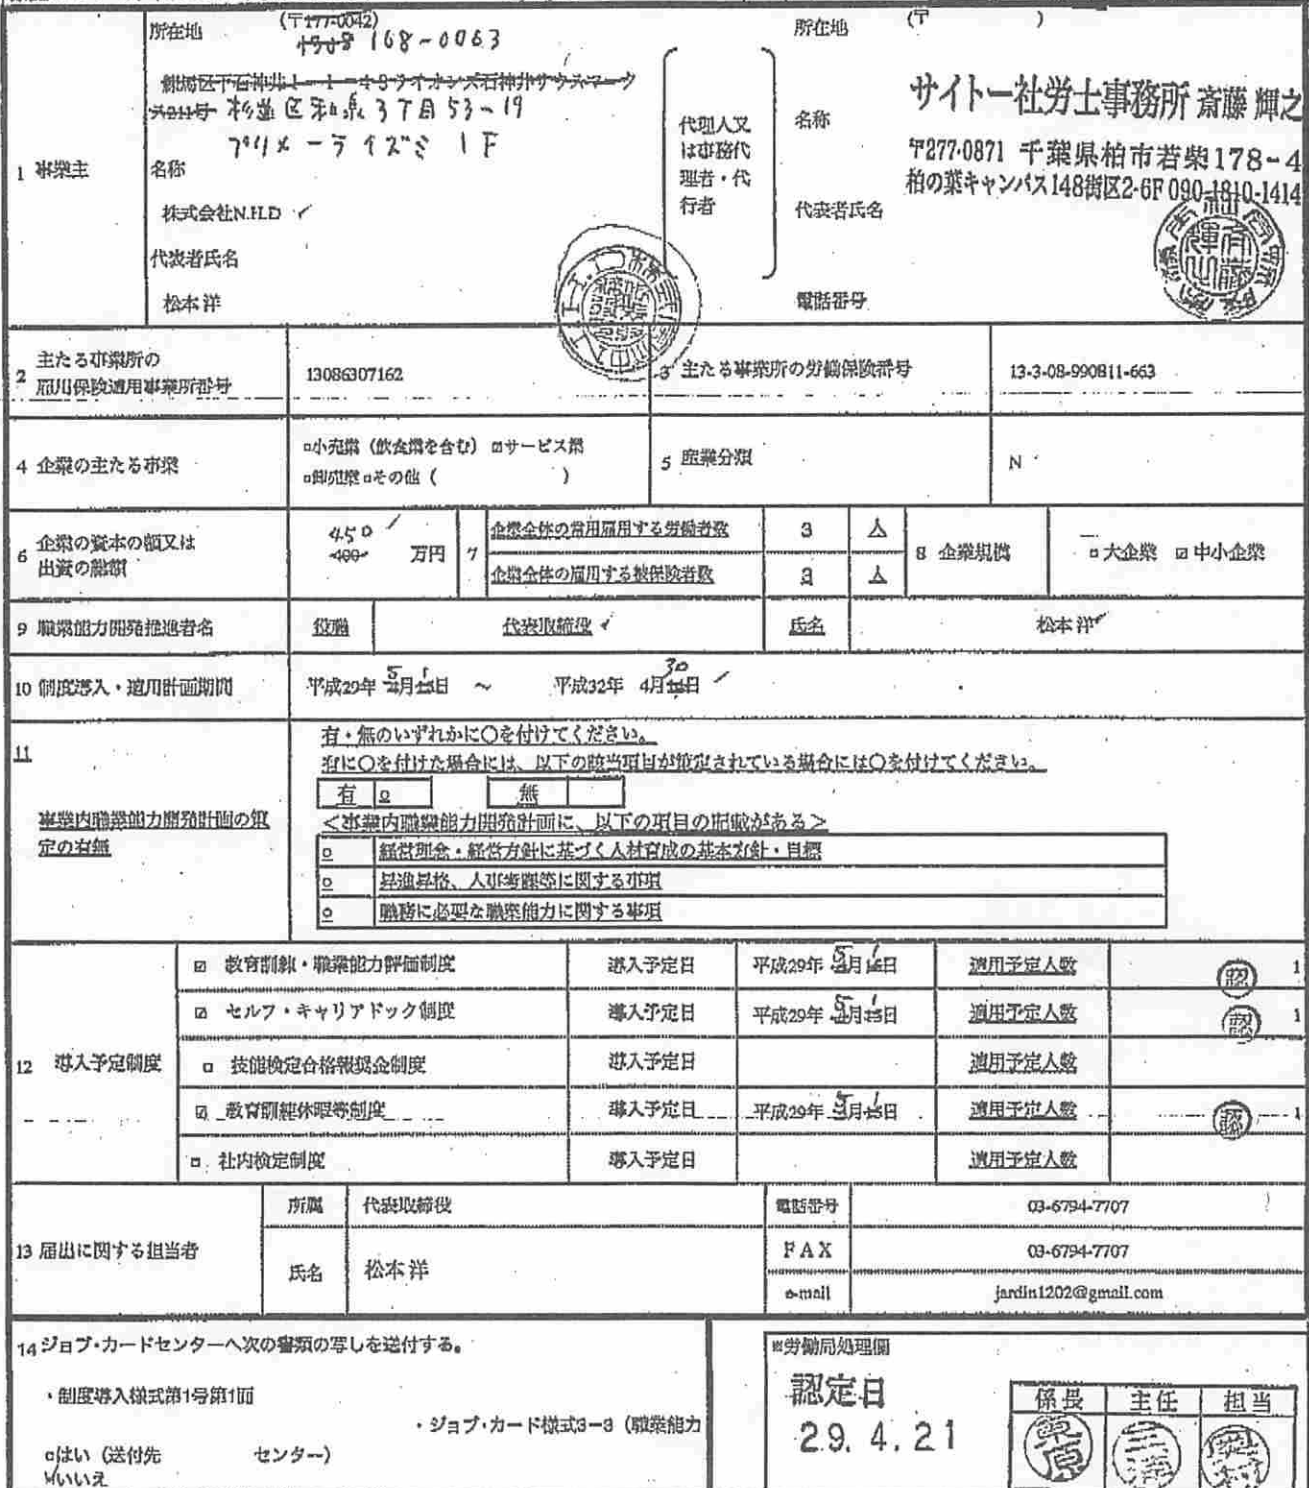 1 事業主
所在地
(〒177-0042)
168-0063
練馬区下石神井1-1-48ライオンズ石神井サウスマーク
ス211号 杉並区和泉3丁目53-19
プリメーライズミ 1F
名称
株式会社N.H.D
代表者氏名
松本洋
代理人又
は事務代
理者・代
行者
所在地
(〒 )
名称
サイトー社労士事務所 斎藤 輝之
〒277-0871 千葉県柏市若柴178-4
柏の葉キャンパス148街区2-6F 090-1810-1414
代表者氏名
電話番号
2 主たる事業所の
雇用保険適用事業所番号
13086307162
3 主たる事業所の労働保険番号
13-3-08-990811-663
4 企業の主たる事業
□小売業(飲食業を含む) ☑サービス業
□卸売業 □その他( )
5 産業分類
N
6 企業の資本の額又は
出資の総額
450
400 万円
7
企業全体の常用雇用する労働者数 3 人
企業全体の雇用する被保険者数 3 人
8 企業規模
□大企業 ☑中小企業
9 職業能力開発推進者名
役職
代表取締役
氏名
松本洋
10 制度導入・適用計画期間
平成29年 5月1日 ~ 平成32年 4月30日
11
事業内職業能力開発計画の策
定の有無
有・無のいずれかに○を付けてください。
有に○を付けた場合には、以下の該当項目が策定されている場合には○を付けてください。
有 o 無
<事業内職業能力開発計画に、以下の項目の記載がある>
o 経営理念・経営方針に基づく人材育成の基本方針・目標
o 昇進昇格、人事考課等に関する事項
o 職務に必要な職業能力に関する事項
12 導入予定制度
☑ 教育訓練・職業能力評価制度 導入予定日 平成29年 5月1日 適用予定人数 認 1
☑ セルフ・キャリアドック制度 導入予定日 平成29年 5月1日 適用予定人数 認 1
□ 技能検定合格報奨金制度 導入予定日 適用予定人数
☑ 教育訓練休暇等制度 導入予定日 平成29年 5月1日 適用予定人数 認 1
□ 社内検定制度 導入予定日 適用予定人数
13 届出に関する担当者
所属 代表取締役
氏名 松本洋
電話番号 03-6794-7707
FAX 03-6794-7707
e-mail jardin1202@gmail.com
14 ジョブ・カードセンターへ次の書類の写しを送付する。
・制度導入様式第1号第1面
・ジョブ・カード様式3-3(職業能力
□はい(送付先 センター)
☑いいえ
※労働局処理欄
認定日
29.4.21
係長 主任 担当
栗原